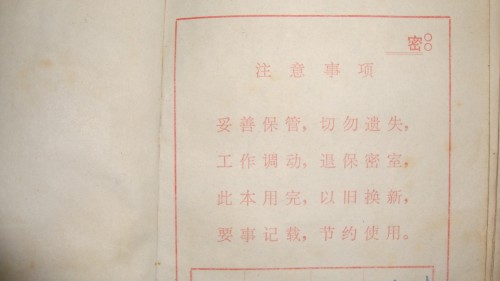 密
注意事项
妥善保管，切勿遗失，
工作调动，退保密室，
此本用完，以旧换新，
要事记载，节约使用。